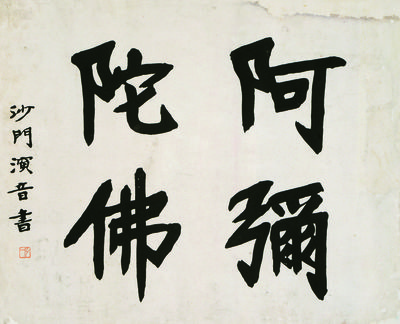 阿彌
陀佛
沙門演音書